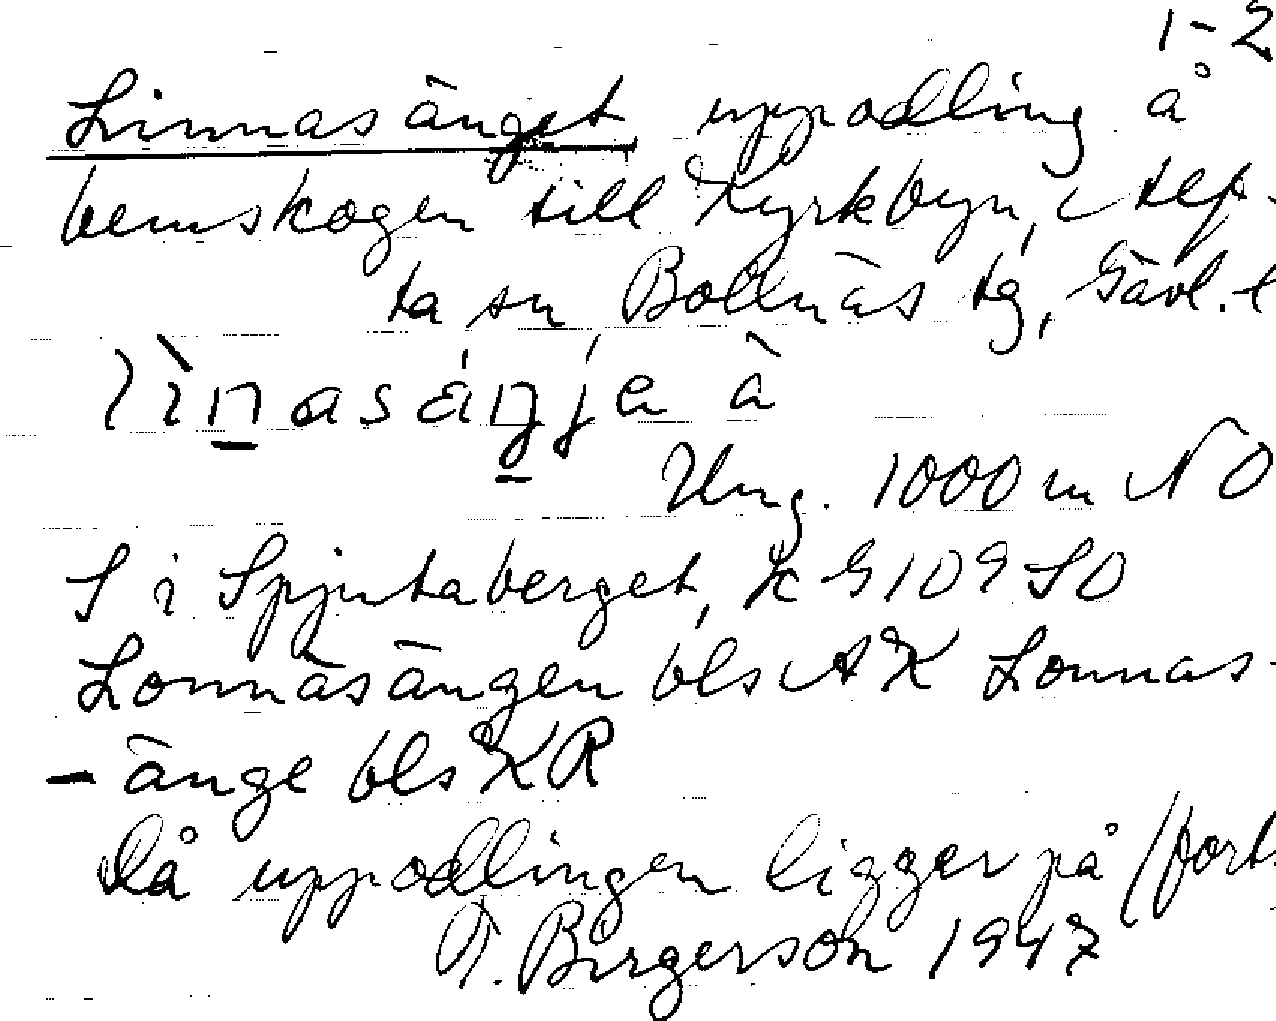 1-2
Linnasänget, uppodling å
hemskogen till Kyrkbyn, Alf-
ta sn Bollnäs tg, Gävl. l
lìnasáŋja à
Ung. 1000 m NO
S i Spjutaberget, K 9109 SO
Lonnäsängen bls AK Lonnas-
-änge bls KR
Då uppodlingen ligger på (forts
T. Birgerson 1947